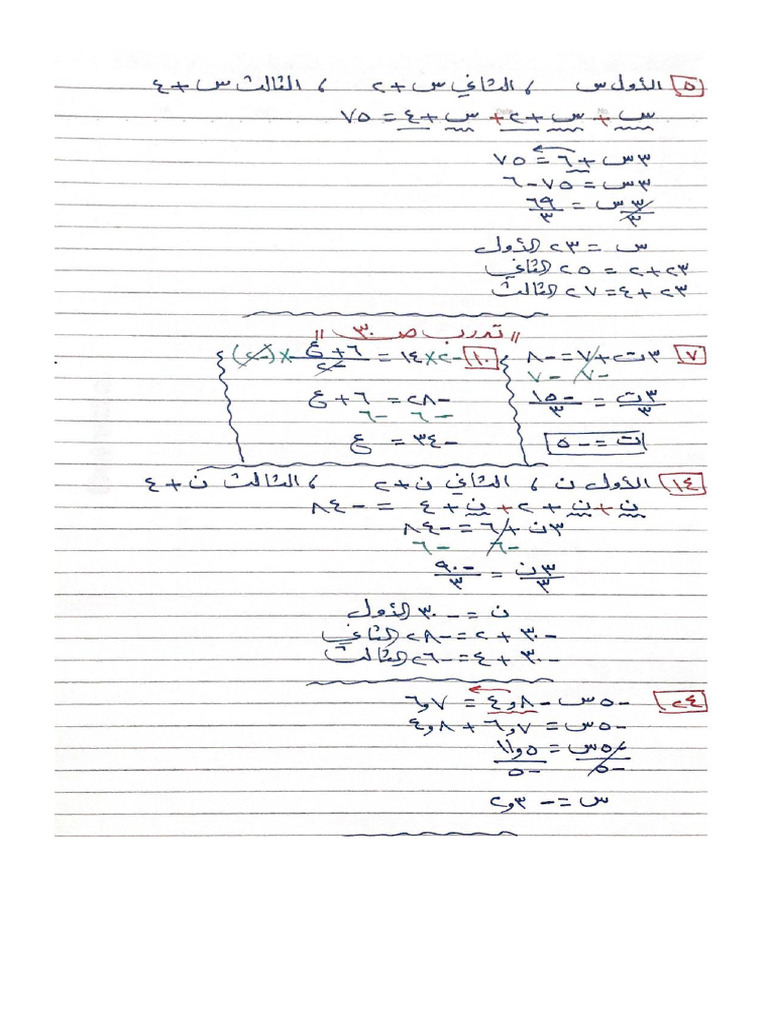 ٥ الأول س ، الثاني س+٢ ، الثالث س+٤
س + س+٢ + س+٤ = ٧٥
٣س+٦ = ٧٥
٣س = ٧٥-٦
٣س/٣ = ٦٩/٣
س = ٢٣ الأول
٢٣+٢ = ٢٥ الثاني
٢٣+٤ = ٢٧ الثالث
// تدرب ص ٣٠ //
٧ ٣ت+٧ = -٨
-٧ -٧
٣ت/٣ = -١٥/٣
ت = -٥
١٠ -٢×١٤ = (٦+ع)/-٢ ×(-٢)
-٢٨ = ٦+ع
-٦ -٦
-٣٤ = ع
١٤ الأول ن ، الثاني ن+٢ ، الثالث ن+٤
ن+ن+٢+ن+٤ = -٨٤
٣ن+٦ = -٨٤
-٦ -٦
٣ن/٣ = -٩٠/٣
ن = -٣٠ الأول
-٣٠+٢ = -٢٨ الثاني
-٣٠+٤ = -٢٦ الثالث
٢٤ -٥س-٨و٤ = ٧و٦
-٥س = ٧و٦+٨و٤
-٥س/-٥ = ٥و١١/-٥
س = -٣و٢